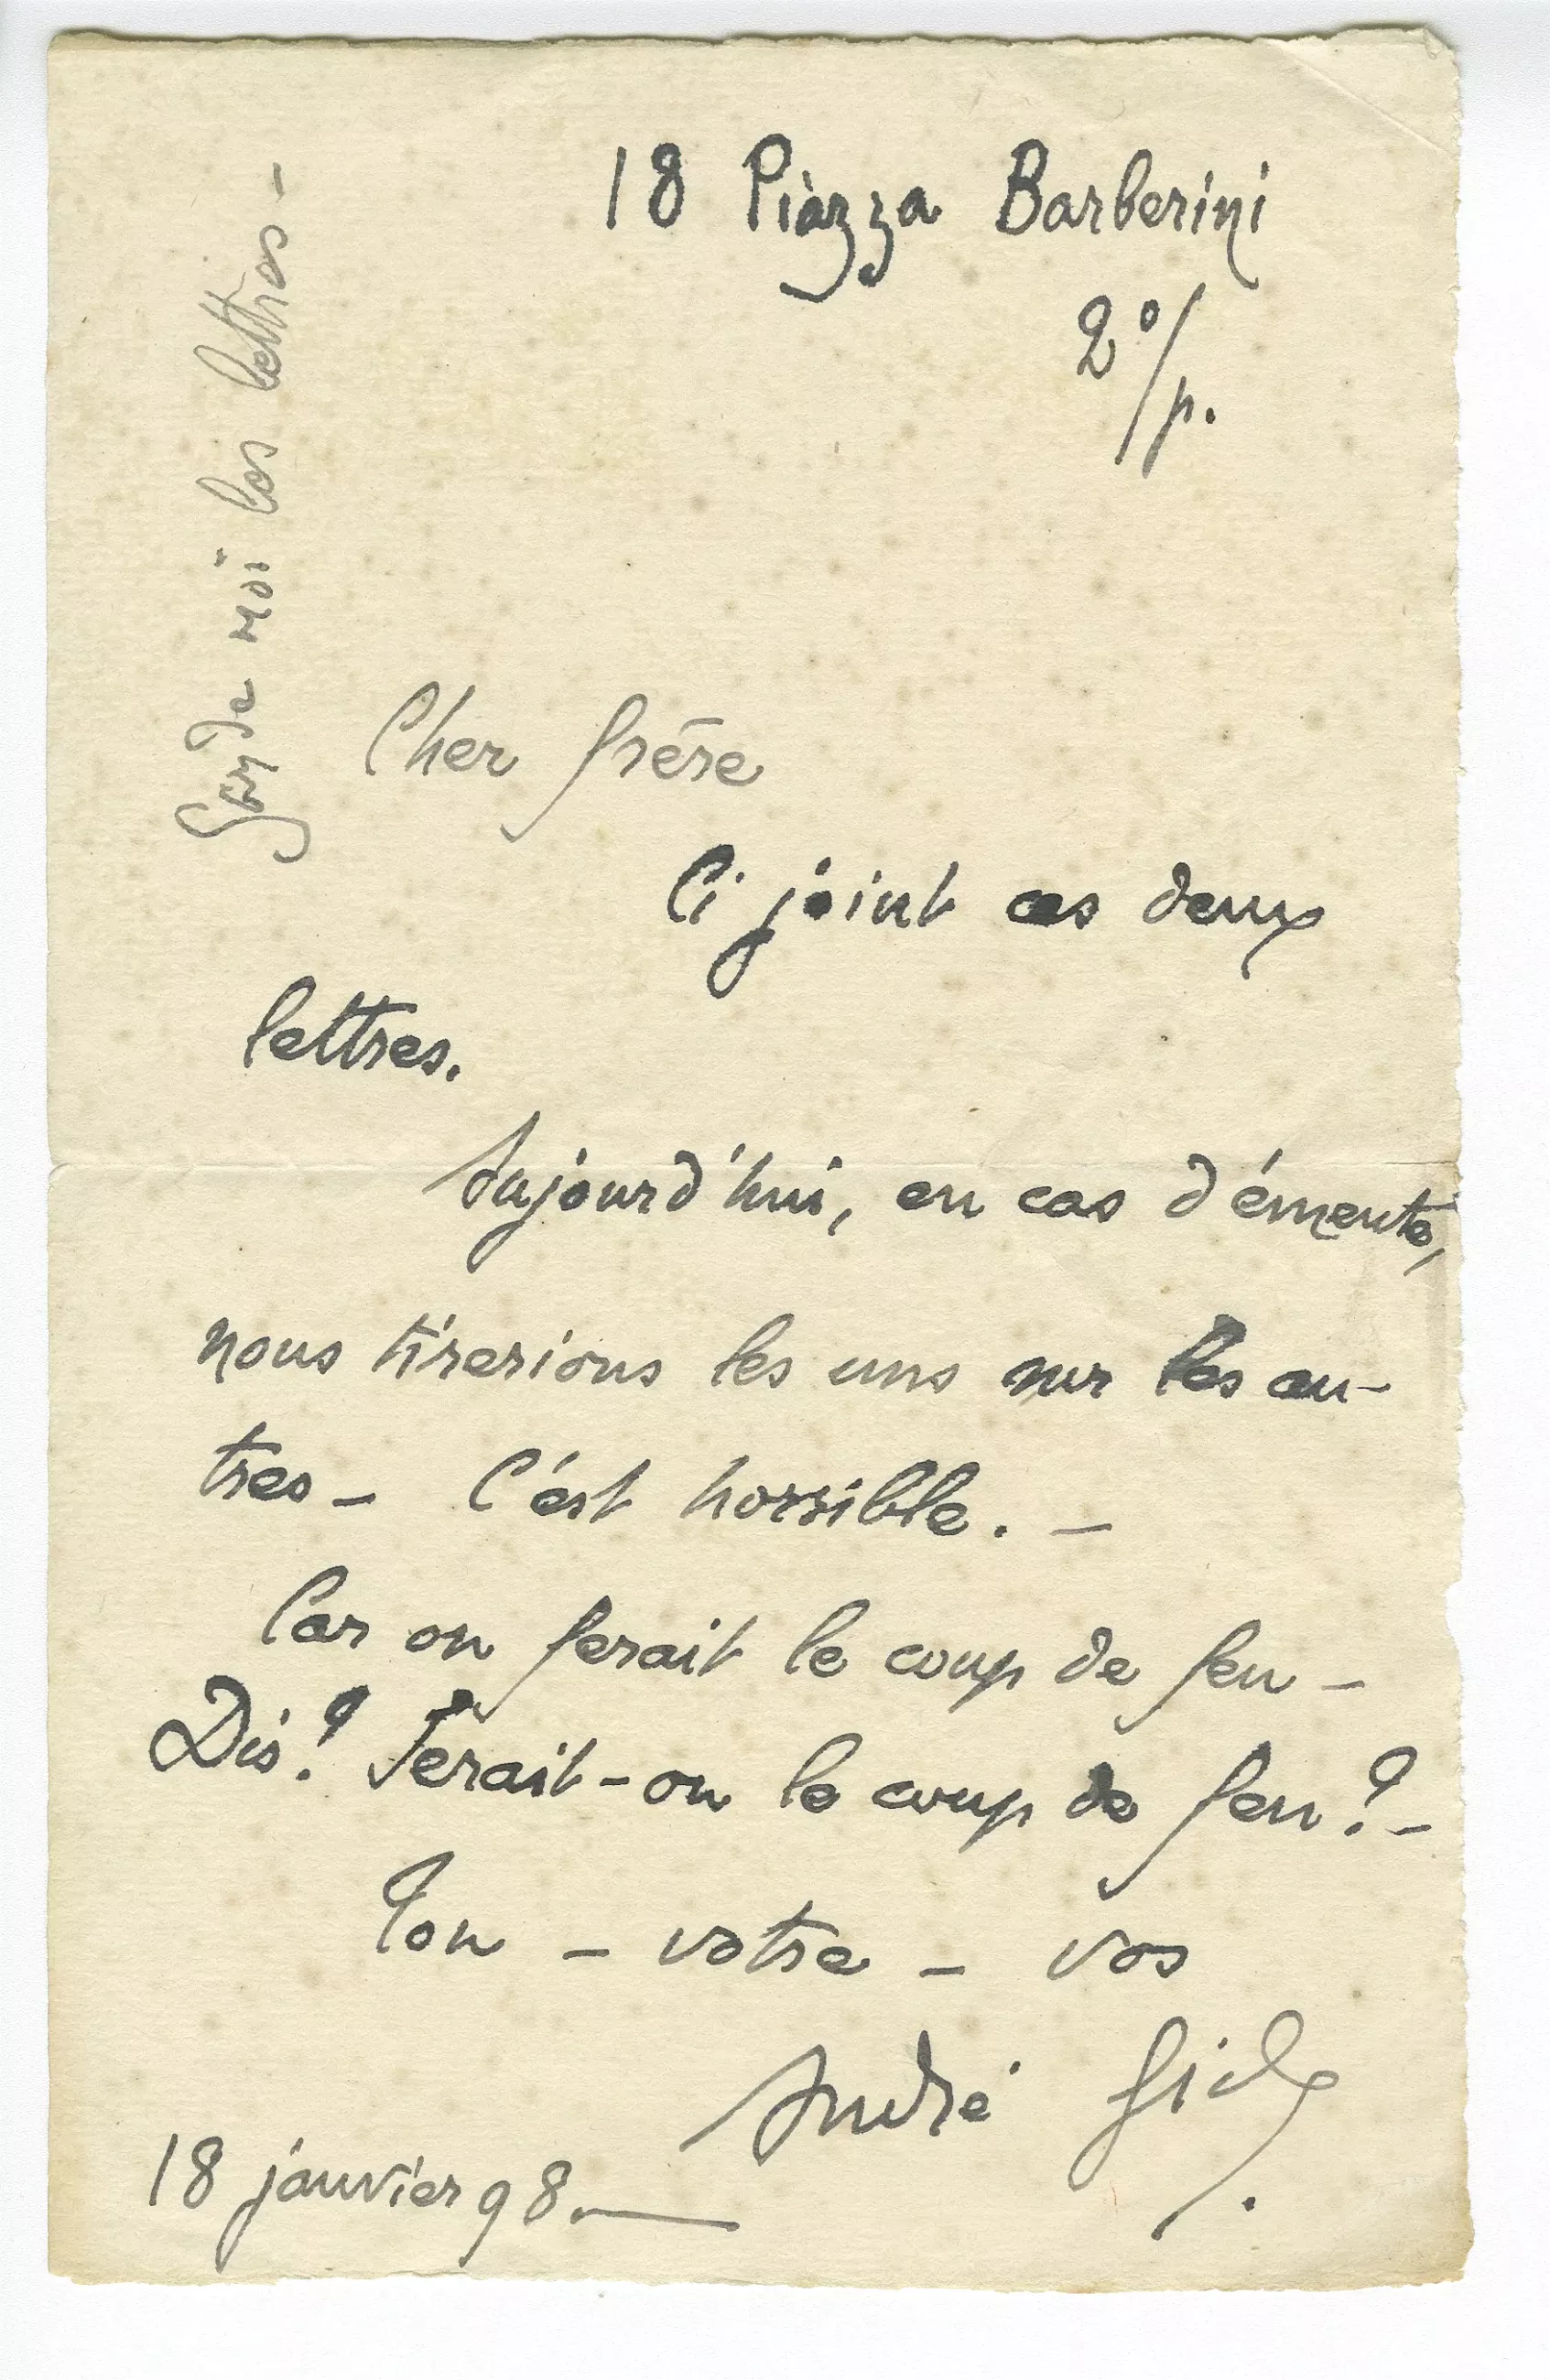 18 Piazza Barberini
2º/p.
Garde moi les lettres –
Cher frère
Ci joint ces deux
lettres.
Aujourd'hui, en cas d'émeute,
nous tirerions les uns sur les au-
tres – C'est horrible. –
Car on ferait le coup de feu –
Dis? Ferait-on le coup de feu? –
Ton – votre – vos
André Gide
18 janvier 98. —